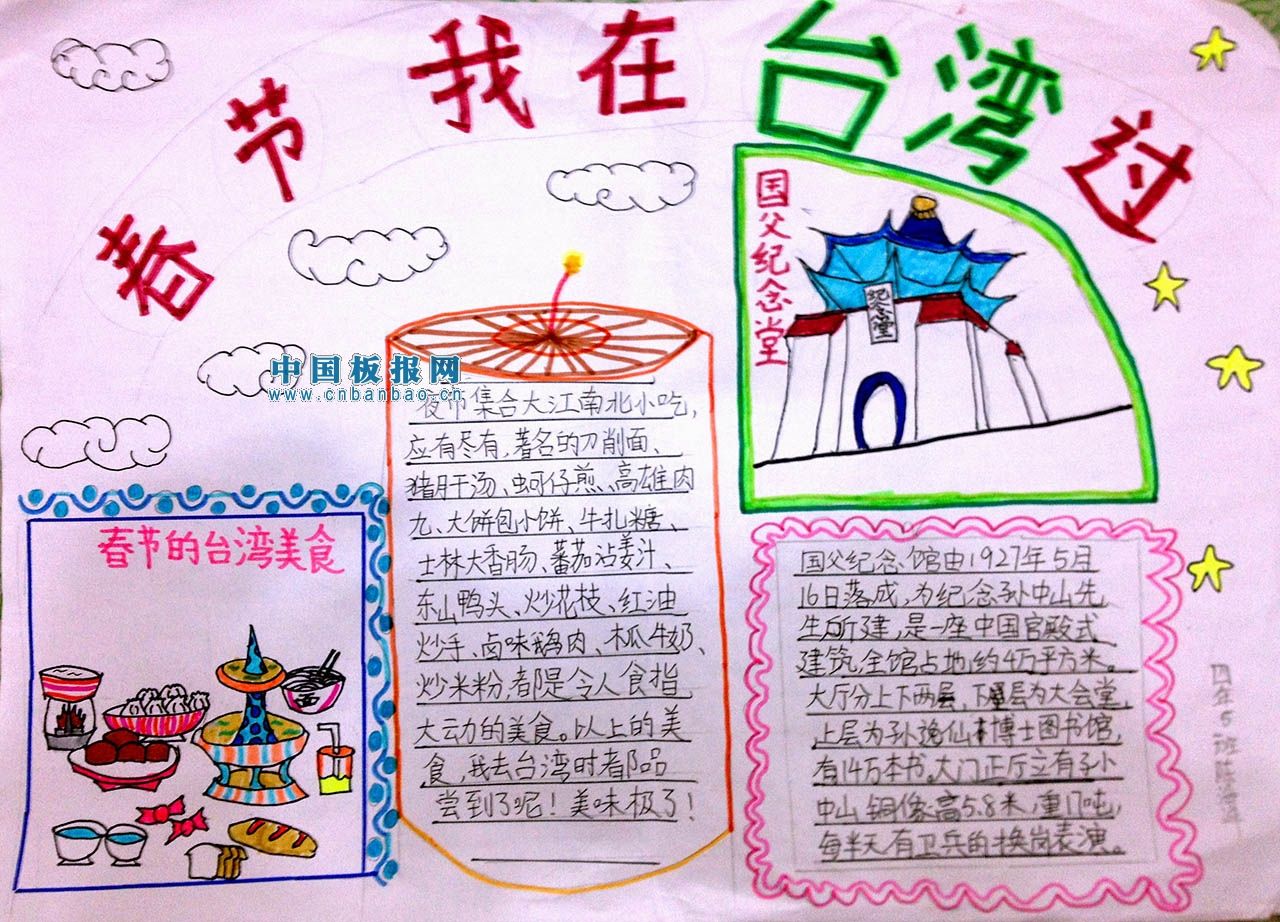 春节我在台湾过
国父纪念堂
纪念堂
中国板报网
www.cnbanbao.cn
夜市集合大江南北小吃，
应有尽有，著名的刀削面、
猪肝汤、蚵仔煎、高雄肉
九、大饼包小饼、牛扎糖、
士林大香肠、蕃茄沾姜汁、
东山鸭头、炒花枝、红油
炒手、卤味鹅肉、木瓜牛奶、
炒米粉，都是令人食指
大云力的美食。以上的美
食，我去台湾时都品
尝到了呢！美味极了！
春节的台湾美食
国父纪念馆由1927年5月
16日落成，为纪念孙中山先
生所建，是一座中国宫殿式
建筑，全馆占地约4万平方米。
大厅分上下两层，下层为大会堂，
上层为孙逸仙博士图书馆，
有14万本书。大门正厅立有孙
中山铜像高5.8米，重17吨，
每半天有卫兵的换岗表演。
四年5班陈